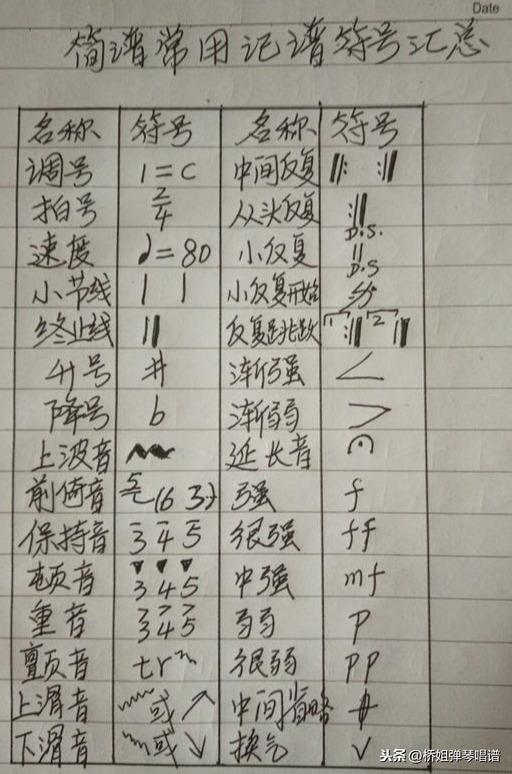 Date
简谱常用记谱符号汇总
名称 符号 名称 符号
调号 1=C 中间反复 ‖: :‖
拍号 2/4 从头反复 :‖
速度 ♩=80 小反复 D.S. ‖
小节线 | | 小反复开始 D.S
终止线 ‖ 反复跳跃 1 :‖ 2 ‖
升号 # 渐强 <
降号 b 渐弱 >
上波音 延长音
前倚音 强 f
保持音 3 4 5 很强 ff
顿音 ▼ ▼ ▼ 3 4 5 中强 mf
重音 > > > 3 4 5 弱 p
颤音 tr 很弱 pp
上滑音 或 ↗ 中间省略
下滑音 或 ↘ 换气 ∨
头条 @桥姐弹琴唱谱